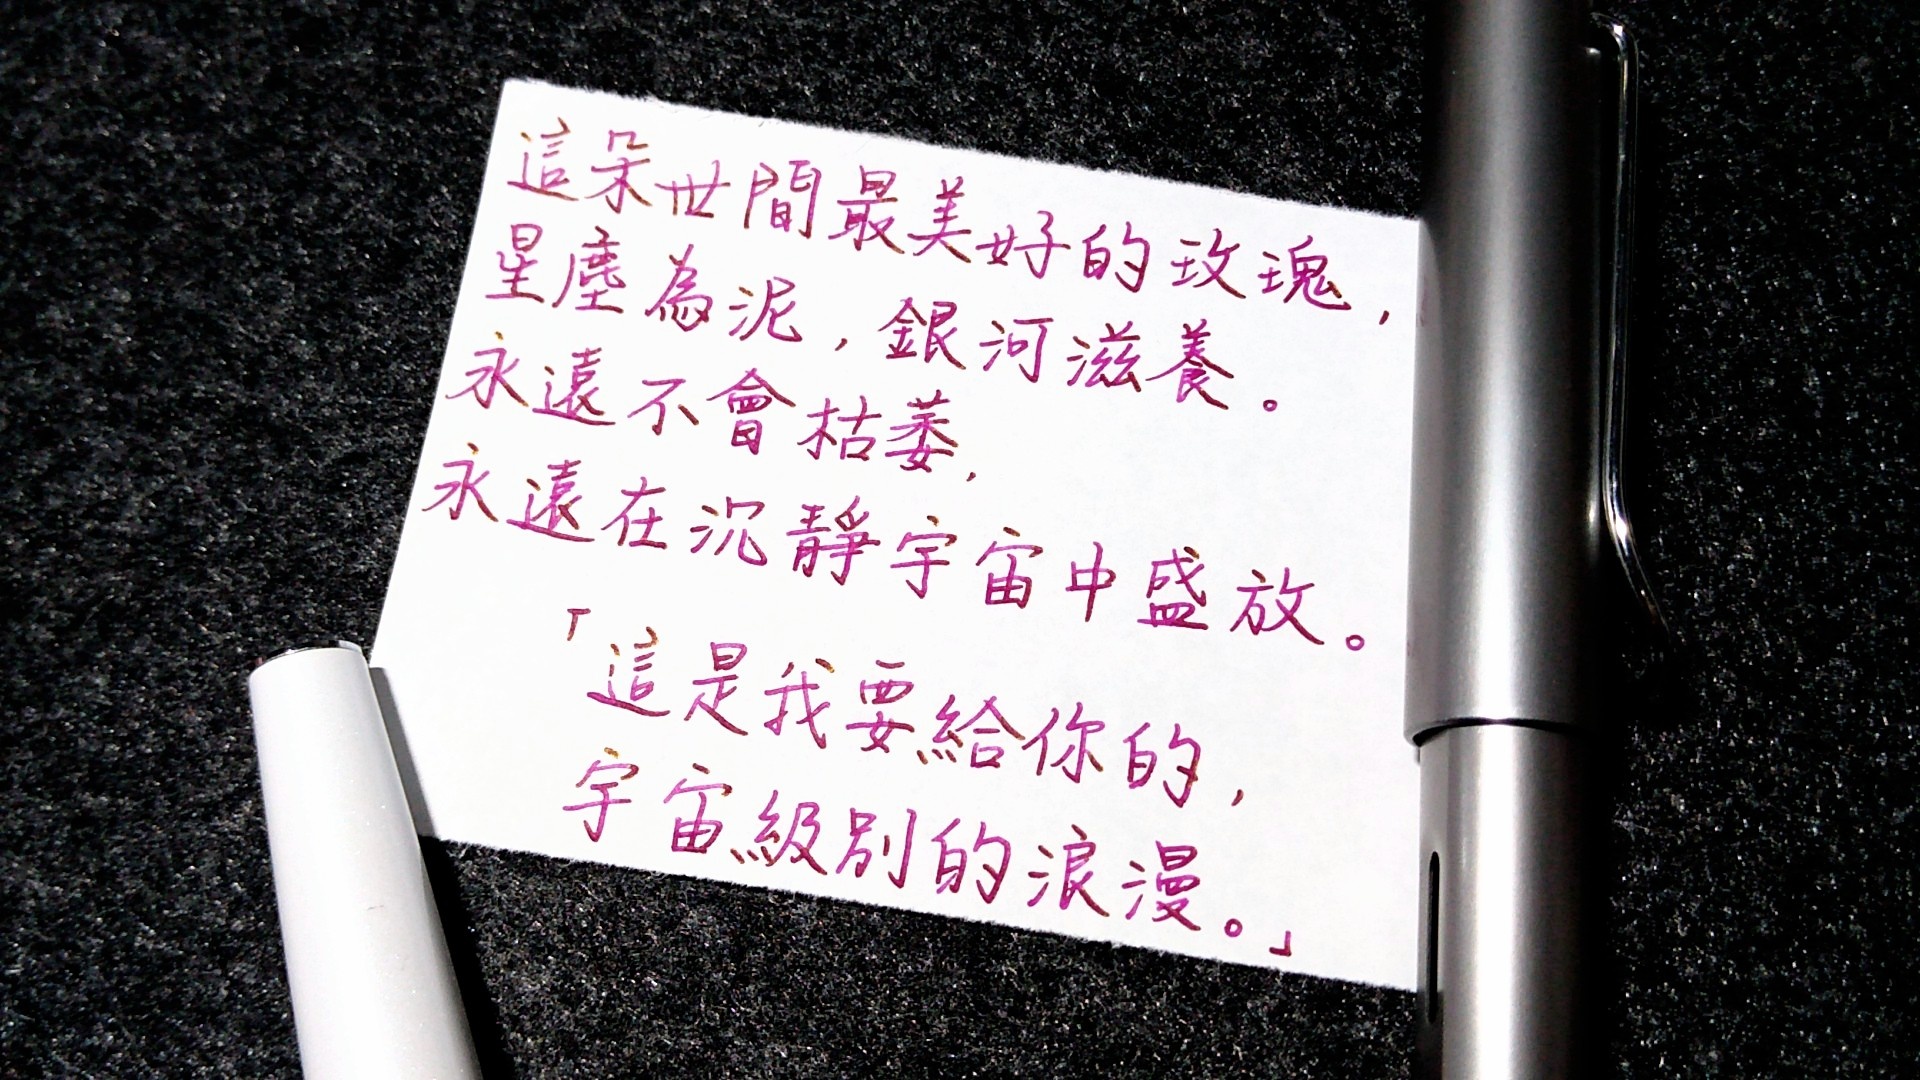 這朵世間最美好的玫瑰，
星塵為泥，銀河滋養。
永遠不會枯萎，
永遠在沉靜宇宙中盛放。
「這是我要給你的，
宇宙級別的浪漫。」